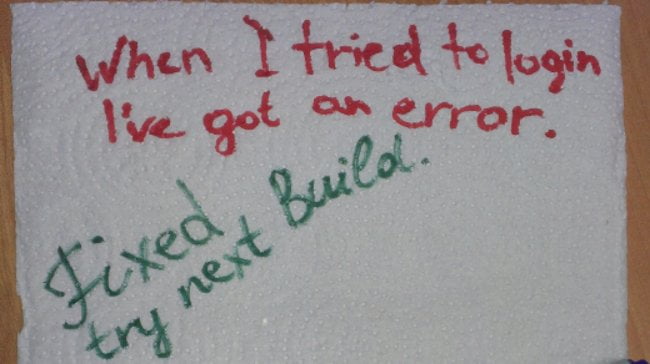 When I tried to login
I've got an error.
Fixed
try next Build.